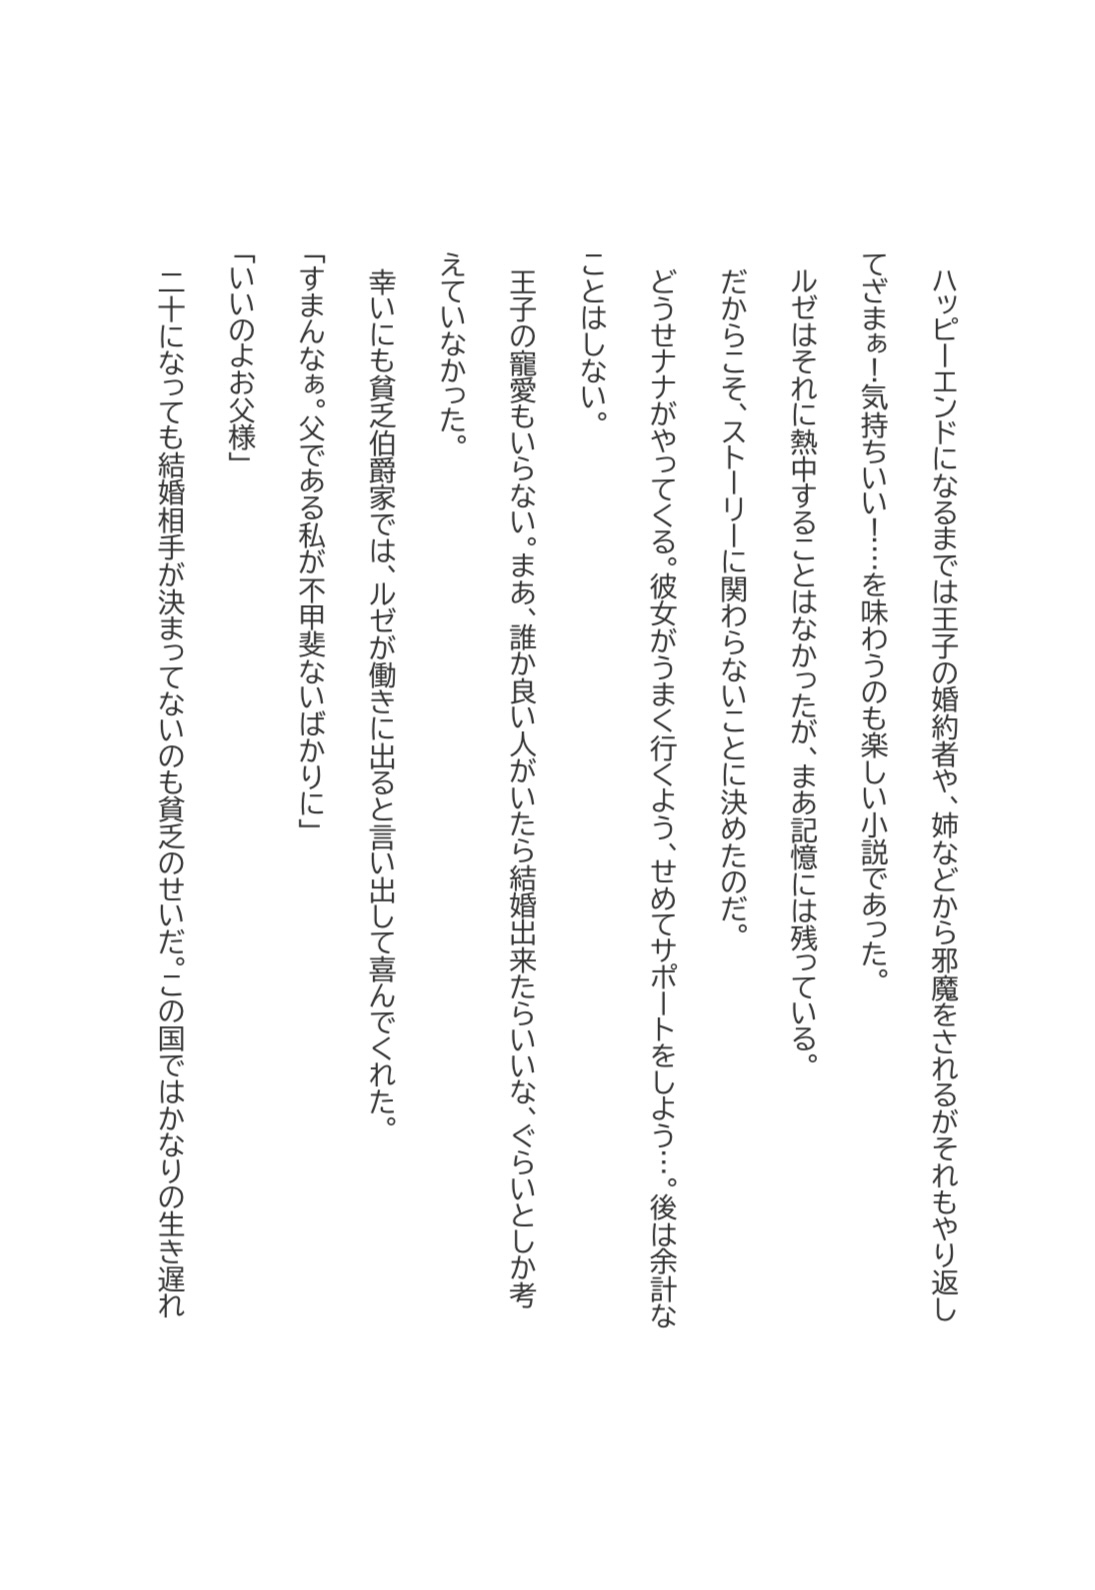 ハッピーエンドになるまでは王子の婚約者や、姉などから邪魔をされるがそれもやり返し
てざまぁ！気持ちいい！…を味わうのも楽しい小説であった。
ルゼはそれに熱中することはなかったが、まあ記憶には残っている。
だからこそ、ストーリーに関わらないことに決めたのだ。
どうせナナがやってくる。彼女がうまく行くよう、せめてサポートをしよう…。後は余計な
ことはしない。
王子の寵愛もいらない。まあ、誰か良い人がいたら結婚出来たらいいな、ぐらいとしか考
えていなかった。
幸いにも貧乏伯爵家では、ルゼが働きに出ると言い出して喜んでくれた。
「すまんなぁ。父である私が不甲斐ないばかりに」
「いいのよお父様」
二十になっても結婚相手が決まってないのも貧乏のせいだ。この国ではかなりの生き遅れ